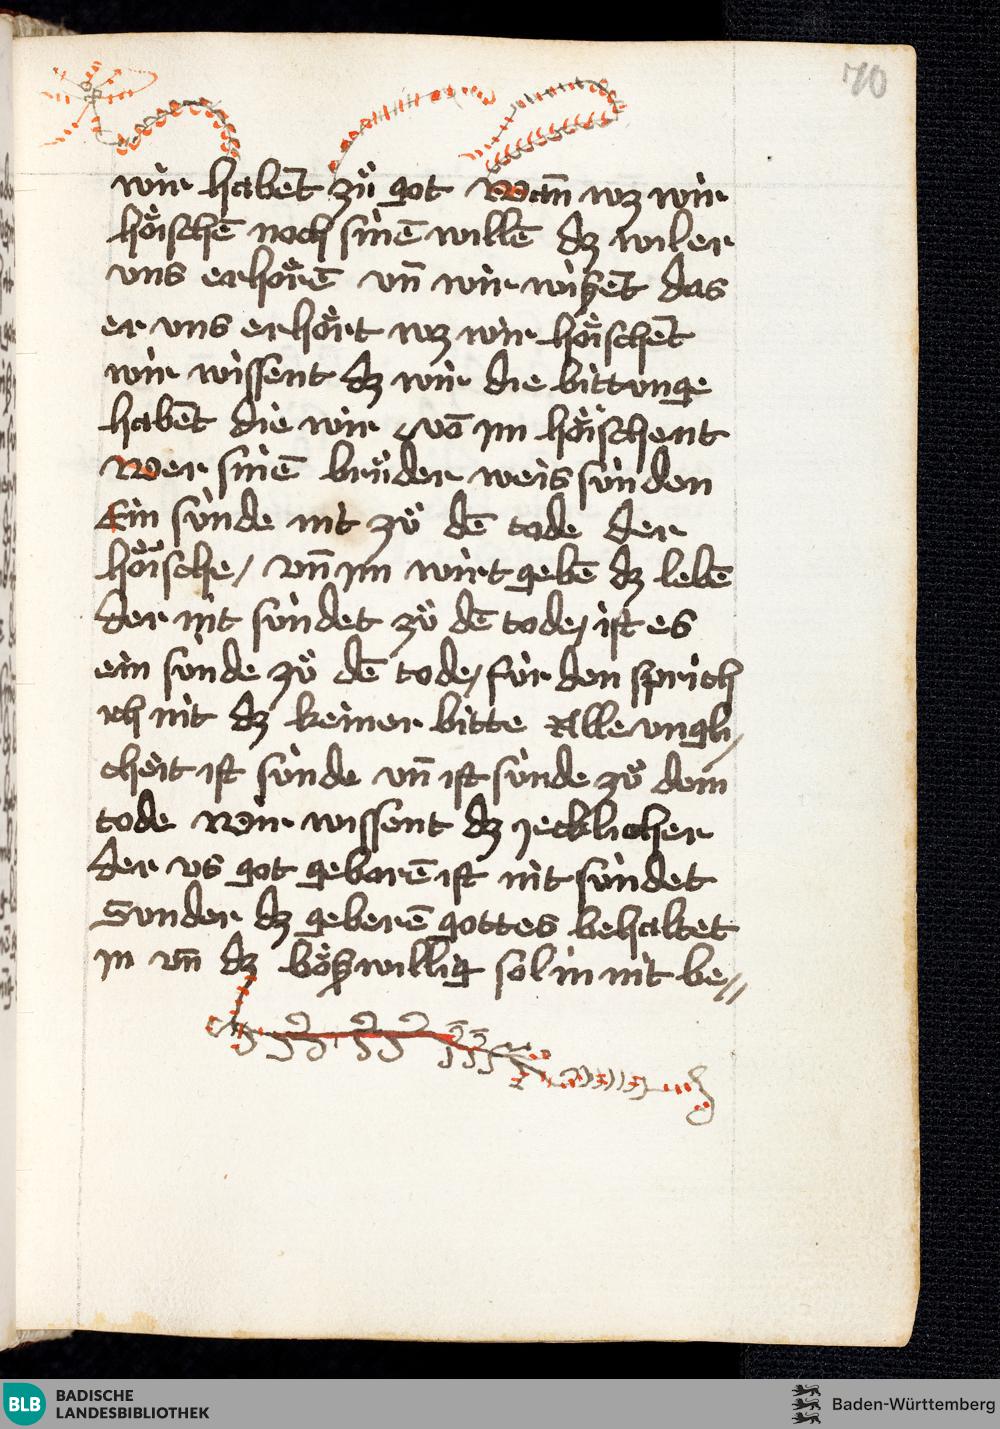 70
wir habēt zů got Wan̄ wz wir
höischē noch sinē willē dz wil er
vns erhörē vn̄ wir wißēt das
er vns erhört wz wir höischēt
wir wissent dz wir die bittunge
habēt die wir vō im höischent
Wer sinē brůder weis sünden
Ein sünde nit zů dē tode der
höische / vn̄ im wirt gebē dz lebē
der nit sündet zů dē tode / ist es
ein sünde zů dē tode / für den sprich
ich nit dz keiner bitte Alle vngli/
cheit ist sünde vn̄ ist sünde zů dem
tode Wir wissent dz jecklicher
der vs got geborē ist nit sündet
Sunder dz geberē gottes behaltet
in vn̄ dz bößwillig sol in nit be//
BLB BADISCHE
LANDESBIBLIOTHEK
Baden-Württemberg